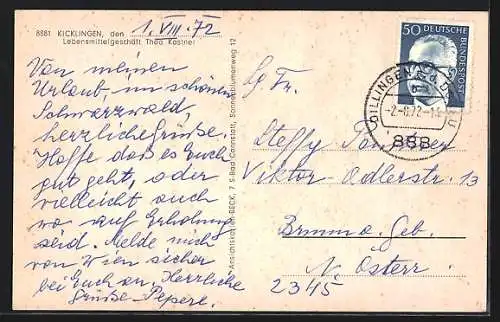 8881 KICKLINGEN, den 1. VIII. 72
Lebensmittelgeschäft Theo Kastner
Von meinem
Urlaub, im schönen
Schwarzwald
herzliche Grüße.
Hoffe daß es Euch
gut geht, oder
vielleicht auch
wo auf Erholung
seid. Melde mich
von Wien sicher
bei Euch an. Herzliche
Grüße Peperl.
Ansichtskarten-BECK, 7 S-Bad Cannstatt, Sonnenblumenweg 12
50 DEUTSCHE BUNDESPOST
DILLINGEN
-2.-8.72-1
888
G. Fr.
Steffy
Viktor Adlerstr. 13
Brunn a. Geb.
N. Österr
2345